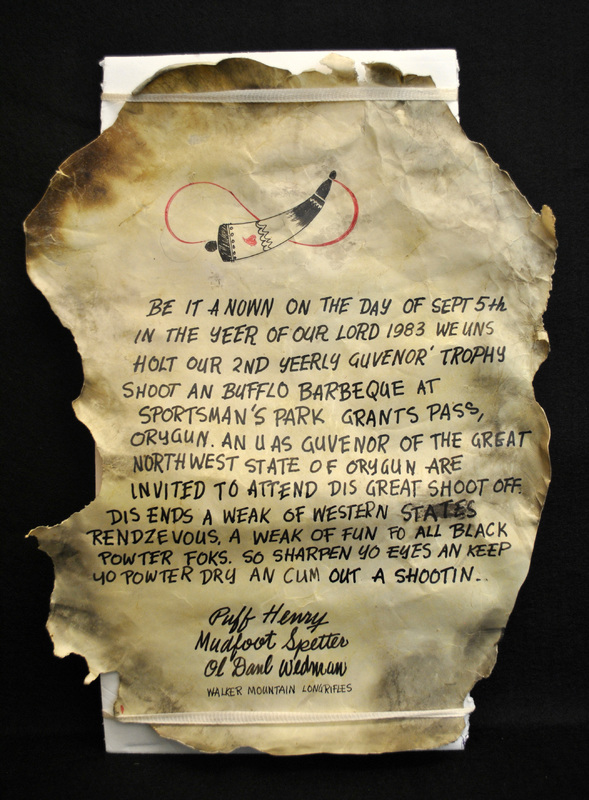 BE IT A NOWN ON THE DAY OF SEPT 5th
IN THE YEER OF OUR LORD 1983 WE UNS
HOLT OUR 2ND YEERLY GUVENOR' TROPHY
SHOOT AN BUFFLO BARBEQUE AT
SPORTSMAN'S PARK GRANTS PASS,
ORYGUN. AN U AS GUVENOR OF THE GREAT
NORTHWEST STATE OF ORYGUN ARE
INVITED TO ATTEND DIS GREAT SHOOT OFF.
DIS ENDS A WEAK OF WESTERN STATES
RENDZEVOUS, A WEAK OF FUN FO ALL BLACK
POWTER FOKS. SO SHARPEN YO EYES AN KEEP
YO POWTER DRY AN CUM OUT A SHOOTIN..
Puff Henry
Mudfoot Spetter
Ol Danl Wedman
WALKER MOUNTAIN LONGRIFLES